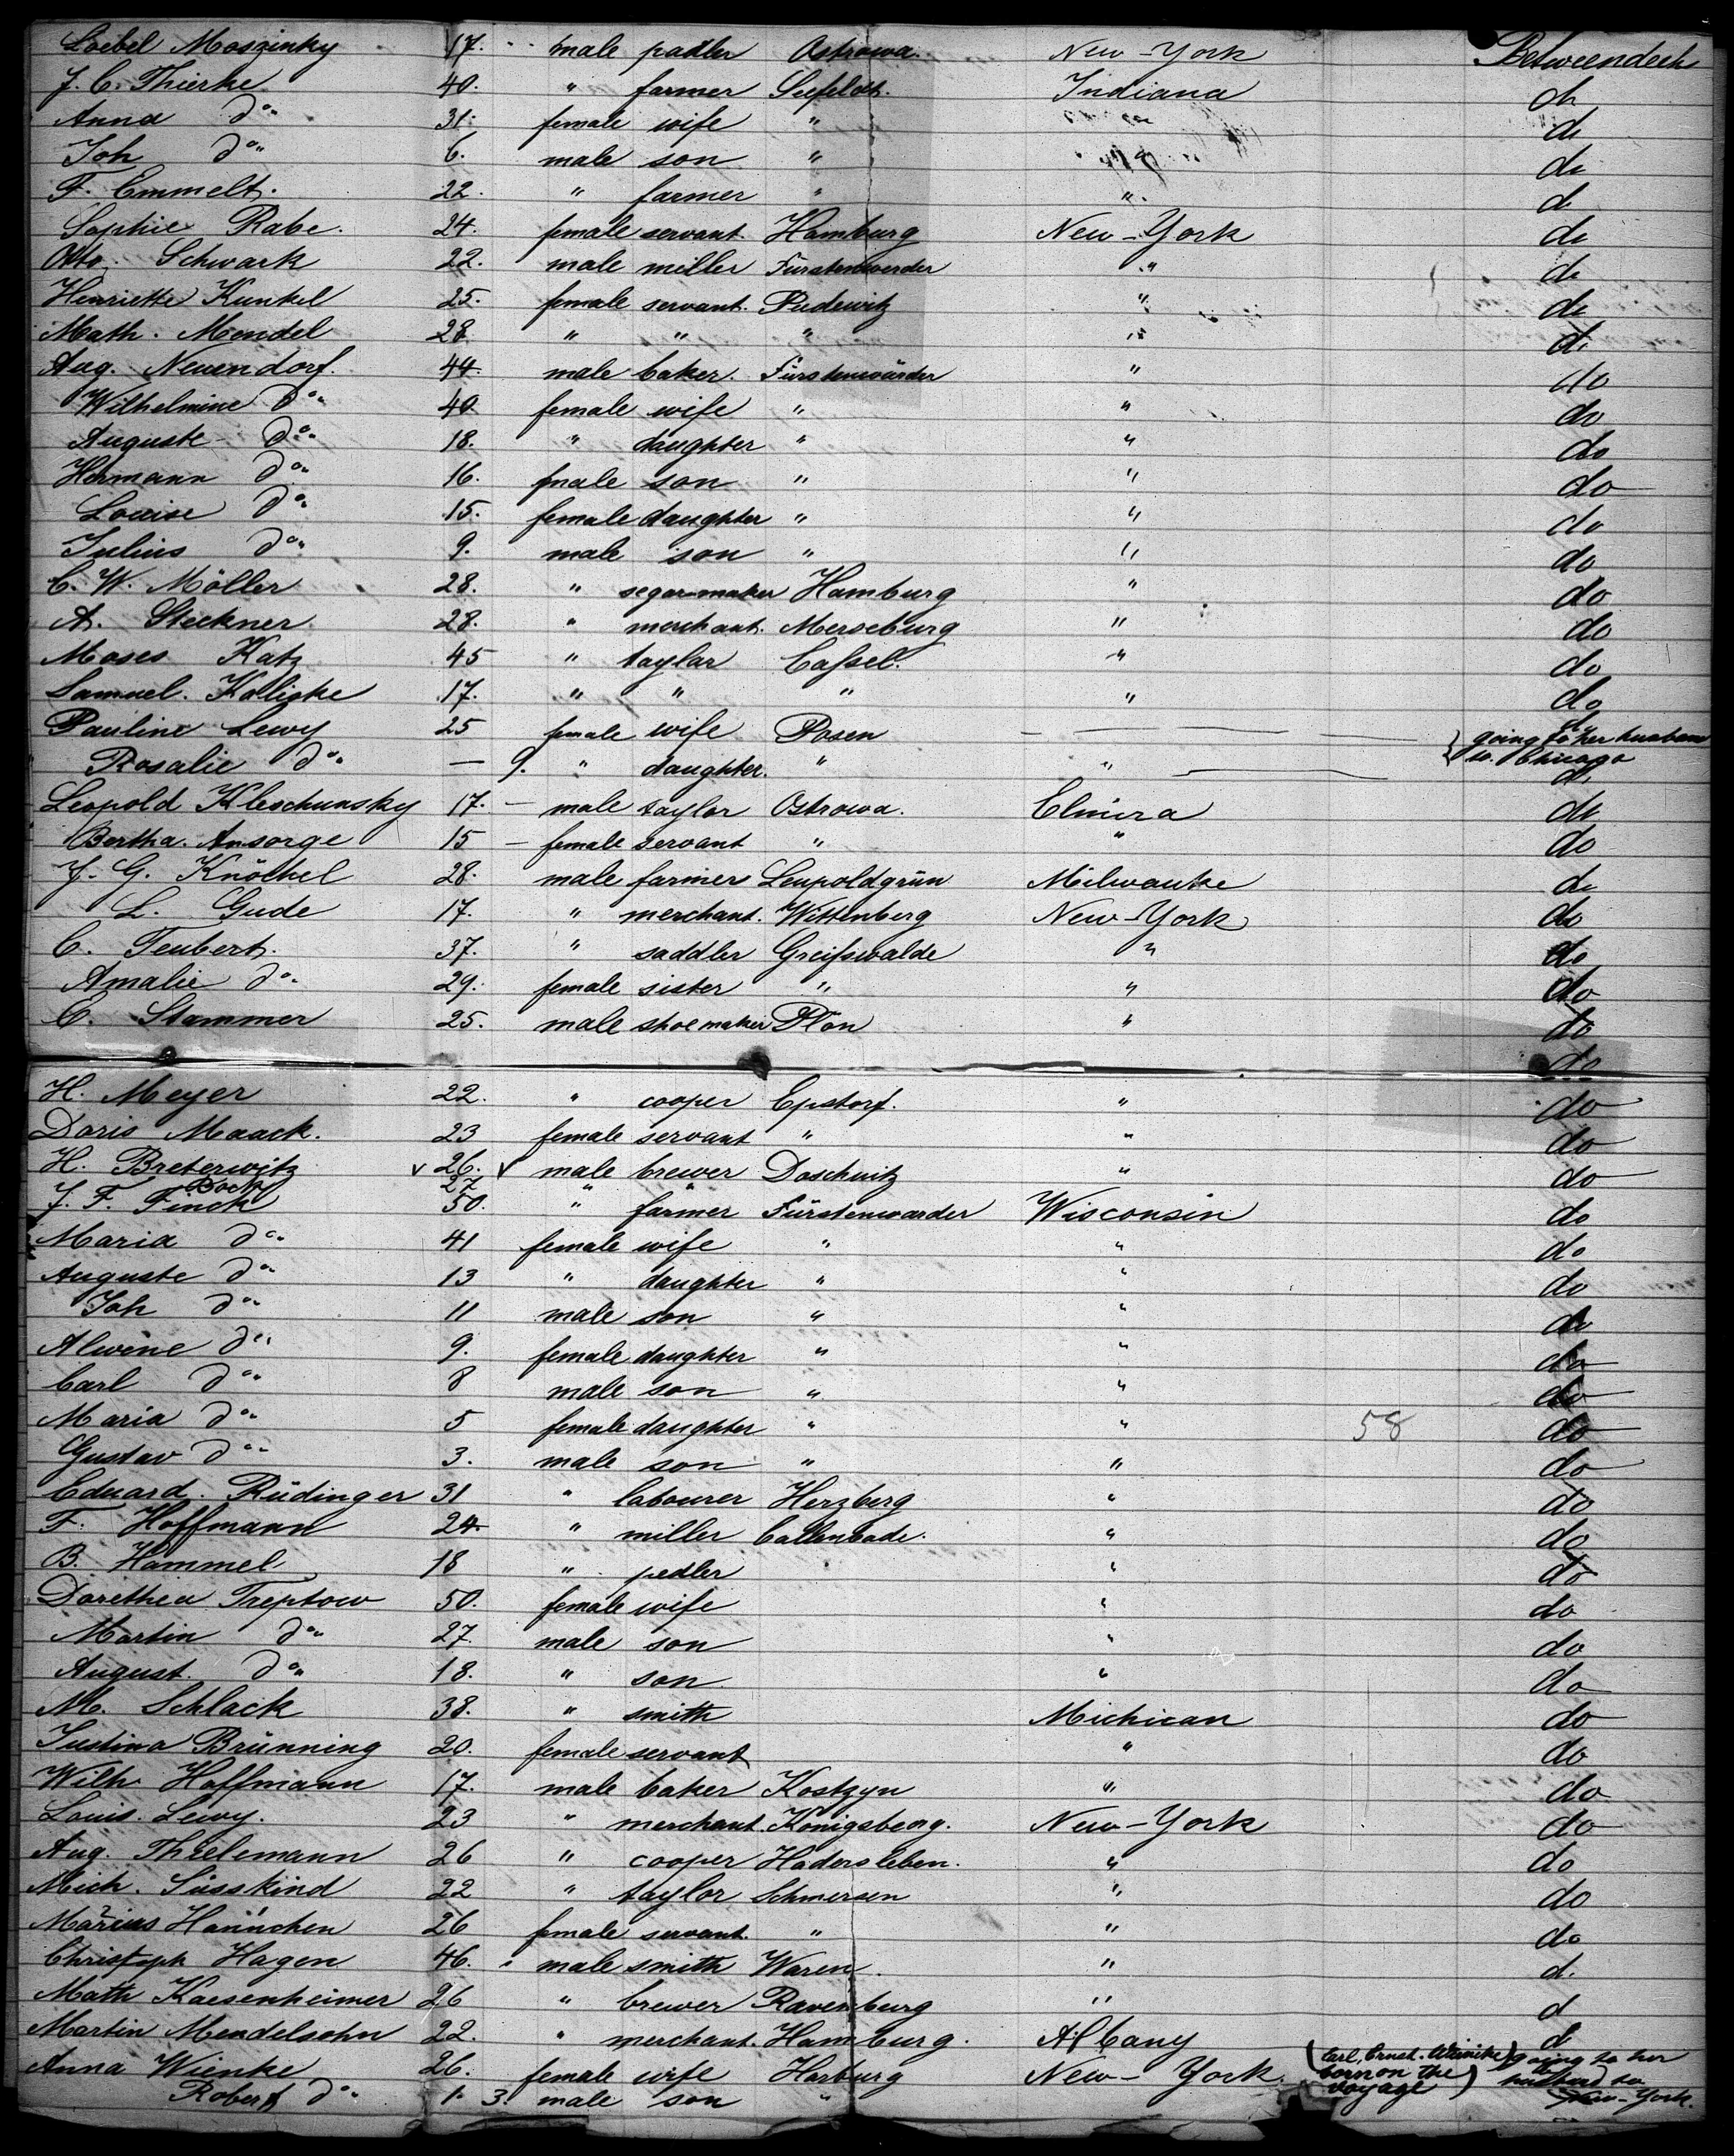 Loebel Moszinky 17. male padler Ostrowa. New-York Betweendeck
J. C. Thierke 40. " farmer Seefeldt. Indiana do
Anna do 31. female wife " " do
Joh do 6. male son " " do
F. Emmelt. 22. " farmer " " do
Sophie Rabe. 24. female servant. Hamburg New-York do
Otto Schwark 22. male miller Fürstenwerder " do
Henriette Kunkel 25. female servant. Pudewitz " do
Math. Mendel 28 " " " " do
Aug. Neuendorf. 44. male baker. Fürstenwärder " do
Wilhelmine do 40 female wife " " do
Auguste do 18. " daughter " " do
Hermann do 16. male son " " do
Louise do 15. female daughter " " do
Julius do 9. male son " " do
C. W. Möller 28. " segar-maker Hamburg " do
A. Steckner 28. " merchant. Merseburg " do
Moses Katz 45 " taylar Cassel. " do
Samuel. Kaliske 17. " " " " do
Pauline Lewy 25 female wife Posen — — — going to her husband
Rosalie do — 9. " daughter. " " — to. Chicago
Leopold Kleschunsky 17. — male taylor Ostrowa. Elmira do
Bertha. Ansorge 15 — female servant " " do
J. G. Knöchel 28. male farmer Leupoldgrün Milwauke do
L. Gude 17. " merchant. Wittenberg New-York do
C. Teubert. 37. " saddler Greifswalde " do
Amalie do 29. female sister " " do
C. Stammer 25. male shoemaker Plön " do
do
H. Meyer 22. " cooper Epstorf. " do
Doris Maack. 23 female servant " " do
H. Breterwitz 26. male brewer Doschwitz " do
Bock 27 " "
J. F. Finck 50. " farmer Fürstenwarder Wisconsin do
Maria do 41 female wife " " do
Auguste do 13 " daughter " " do
Joh do 11 male son " " do
Alwine do 9. female daughter " " do
Carl do 8 male son " " do
Maria do 5 female daughter " " 58 do
Gustav do 3. male son " " do
Eduard. Rüdinger 31 " labourer Herzberg " do
F. Hoffmann 24. " miller " do
B. Hammel 18 " pedler " do
Dorethea Treptow 50. female wife " do
Martin do 27. male son " do
August. do 18. " son " do
M. Schlack 38. " smith Michican do
Justina Brünning 20. female servant " do
Wilh Hoffmann 17. male baker Kostzyn " do
Louis. Lewy. 23 " merchant. Königsberg. New-York do
Aug. Thielemann 26 " cooper Hadersleben. " do
Mich. Süsskind 22 " taylor Schmersen " do
Marius Hannchen 26 female servant. " " do
Christoph Hagen 46. male smith Waren. " do
Math Kaesenheimer 26 " brewer Ravenburg " do
Martin Mendelsohn 22. " merchant. Hamburg. Albany do
Anna Wienke 26. female wife Harburg New-York. (Carl, Ernst. Wienke born on the voyage) going to her husband to
Robert do 1. 3. male son " New-York.